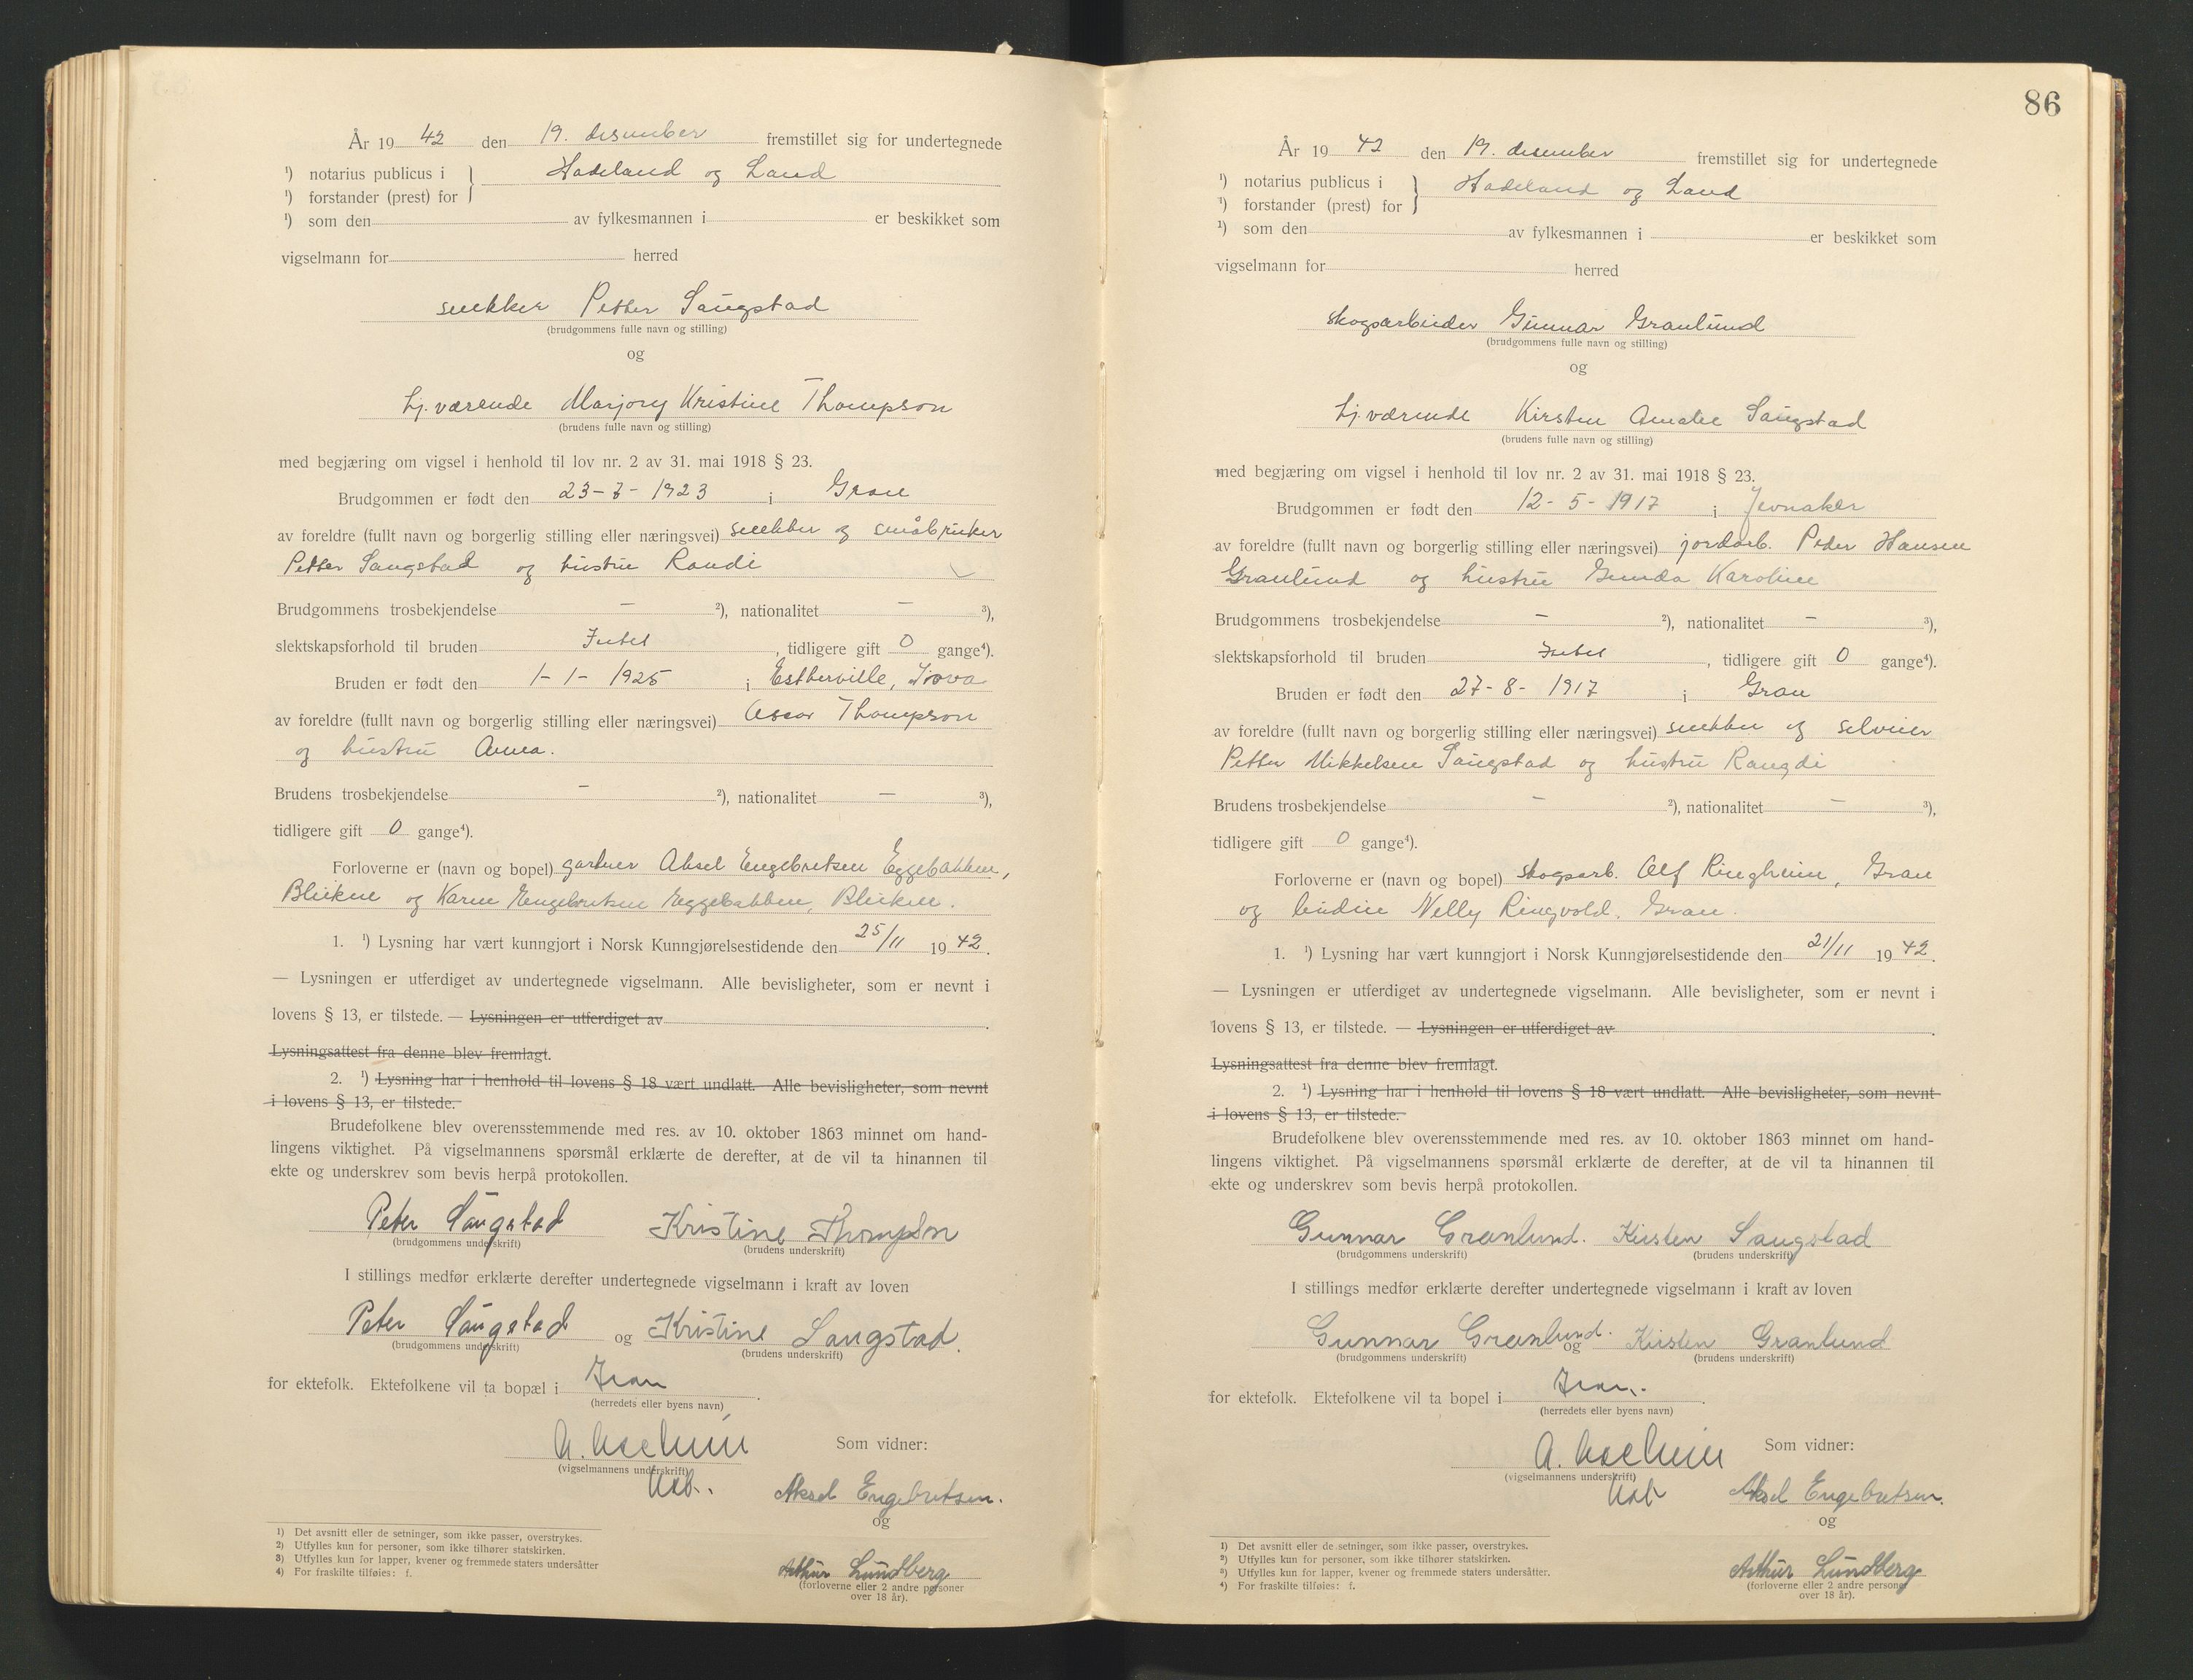 År 19 42 den 19. desember fremstillet sig for undertegnede
¹) notarius publicus i } Hadeland og Land
¹) forstander (prest) for
¹) som den av fylkesmannen i er beskikket som
vigselmann for herred
snekker Petter Saugstad
(brudgommens fulle navn og stilling)
og
hj.værende Marjory Kristine Thompson
(brudens fulle navn og stilling)
med begjæring om vigsel i henhold til lov nr. 2 av 31. mai 1918 § 23.
Brudgommen er født den 23-7-1923 i Gran
av foreldre (fullt navn og borgerlig stilling eller næringsvei) snekker og småbruker
Petter Saugstad og hustru Randi
Brudgommens trosbekjendelse – ²), nationalitet – ³),
slektskapsforhold til bruden Intet, tidligere gift 0 gange⁴).
Bruden er født den 1-1-1925 i Estherville, Iowa
av foreldre (fullt navn og borgerlig stilling eller næringsvei) Oscar Thompson
og hustru Anna.
Brudens trosbekjendelse – ²), nationalitet – ³),
tidligere gift 0 gange⁴).
Forloverne er (navn og bopel) gartner Aksel Engebretsen Eggebakken,
Bleiken og Karen Engebretsen Eggebakken, Bleiken.
1. ¹) Lysning har vært kunngjort i Norsk Kunngjørelsestidende den 25/11 19 42.
— Lysningen er utferdiget av undertegnede vigselmann. Alle bevisligheter, som er nevnt i
lovens § 13, er tilstede. — Lysningen er utferdiget av .
Lysningsattest fra denne blev fremlagt.
2. ¹) Lysning har i henhold til lovens § 18 vært undlatt. Alle bevisligheter, som nevnt
i lovens § 13, er tilstede.
Brudefolkene blev overensstemmende med res. av 10. oktober 1863 minnet om hand-
lingens viktighet. På vigselmannens spørsmål erklærte de derefter, at de vil ta hinannen til
ekte og underskrev som bevis herpå protokollen.
Peter Saugstad Kristine Thompson
(brudgommens underskrift) (brudens underskrift)
I stillings medfør erklærte derefter undertegnede vigselmann i kraft av loven
Peter Saugstad og Kristine Saugstad.
(brudgommens underskrift) (brudens underskrift)
for ektefolk. Ektefolkene vil ta bopæl i Gran.
(herredets eller byens navn)
Som vidner:
(vigselmannens underskrift)
Aksel Engebretsen.
og
Arthur Lundberg
(forloverne eller 2 andre personer
over 18 år).
1) Det avsnitt eller de setninger, som ikke passer, overstrykes.
2) Utfylles kun for personer, som ikke tilhører statskirken.
3) Utfylles kun for lapper, kvener og fremmede staters undersåtter
4) For fraskilte tilføies: f.
86
År 19 42 den 19. desember fremstillet sig for undertegnede
¹) notarius publicus i } Hadeland og Land
¹) forstander (prest) for
¹) som den av fylkesmannen i er beskikket som
vigselmann for herred
skogsarbeider Gunnar Granlund
(brudgommens fulle navn og stilling)
og
hj.værende Kirsten Amalie Saugstad
(brudens fulle navn og stilling)
med begjæring om vigsel i henhold til lov nr. 2 av 31. mai 1918 § 23.
Brudgommen er født den 12-5-1917 i Jevnaker
av foreldre (fullt navn og borgerlig stilling eller næringsvei) jordarb. Peder Hansen
Granlund og hustru Gunda Karoline
Brudgommens trosbekjendelse – ²), nationalitet – ³),
slektskapsforhold til bruden Intet, tidligere gift 0 gange⁴).
Bruden er født den 27-8-1917 i Gran
av foreldre (fullt navn og borgerlig stilling eller næringsvei) snekker og selveier
Petter Mikkelsen Saugstad og hustru Rangdi
Brudens trosbekjendelse – ²), nationalitet – ³),
tidligere gift 0 gange⁴).
Forloverne er (navn og bopel) skogsarb. Alf Ringheim, Gran
og Nelly Ringvold, Gran.
1. ¹) Lysning har vært kunngjort i Norsk Kunngjørelsestidende den 21/11 19 42.
— Lysningen er utferdiget av undertegnede vigselmann. Alle bevisligheter, som er nevnt i
lovens § 13, er tilstede. — Lysningen er utferdiget av .
Lysningsattest fra denne blev fremlagt.
2. ¹) Lysning har i henhold til lovens § 18 vært undlatt. Alle bevisligheter, som nevnt
i lovens § 13, er tilstede.
Brudefolkene blev overensstemmende med res. av 10. oktober 1863 minnet om hand-
lingens viktighet. På vigselmannens spørsmål erklærte de derefter, at de vil ta hinannen til
ekte og underskrev som bevis herpå protokollen.
Gunnar Granlund. Kirsten Saugstad
(brudgommens underskrift) (brudens underskrift)
I stillings medfør erklærte derefter undertegnede vigselmann i kraft av loven
Gunnar Granlund. og Kirsten Granlund
(brudgommens underskrift) (brudens underskrift)
for ektefolk. Ektefolkene vil ta bopel i Gran.
(herredets eller byens navn)
Som vidner:
(vigselmannens underskrift)
Aksel Engebretsen.
og
Arthur Lundberg
(forloverne eller 2 andre persone
over 18 år).
1) Det avsnitt eller de setninger, som ikke passer, overstrykes.
2) Utfylles kun for personer, som ikke tilhører statskirken.
3) Utfylles kun for lapper, kvener og fremmede staters undersåtter.
4) For fraskilte tilføies: f.